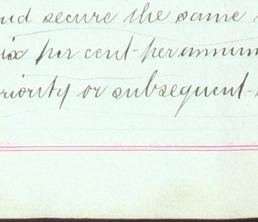 and secure the same
six per cent per annum
priority or subsequent